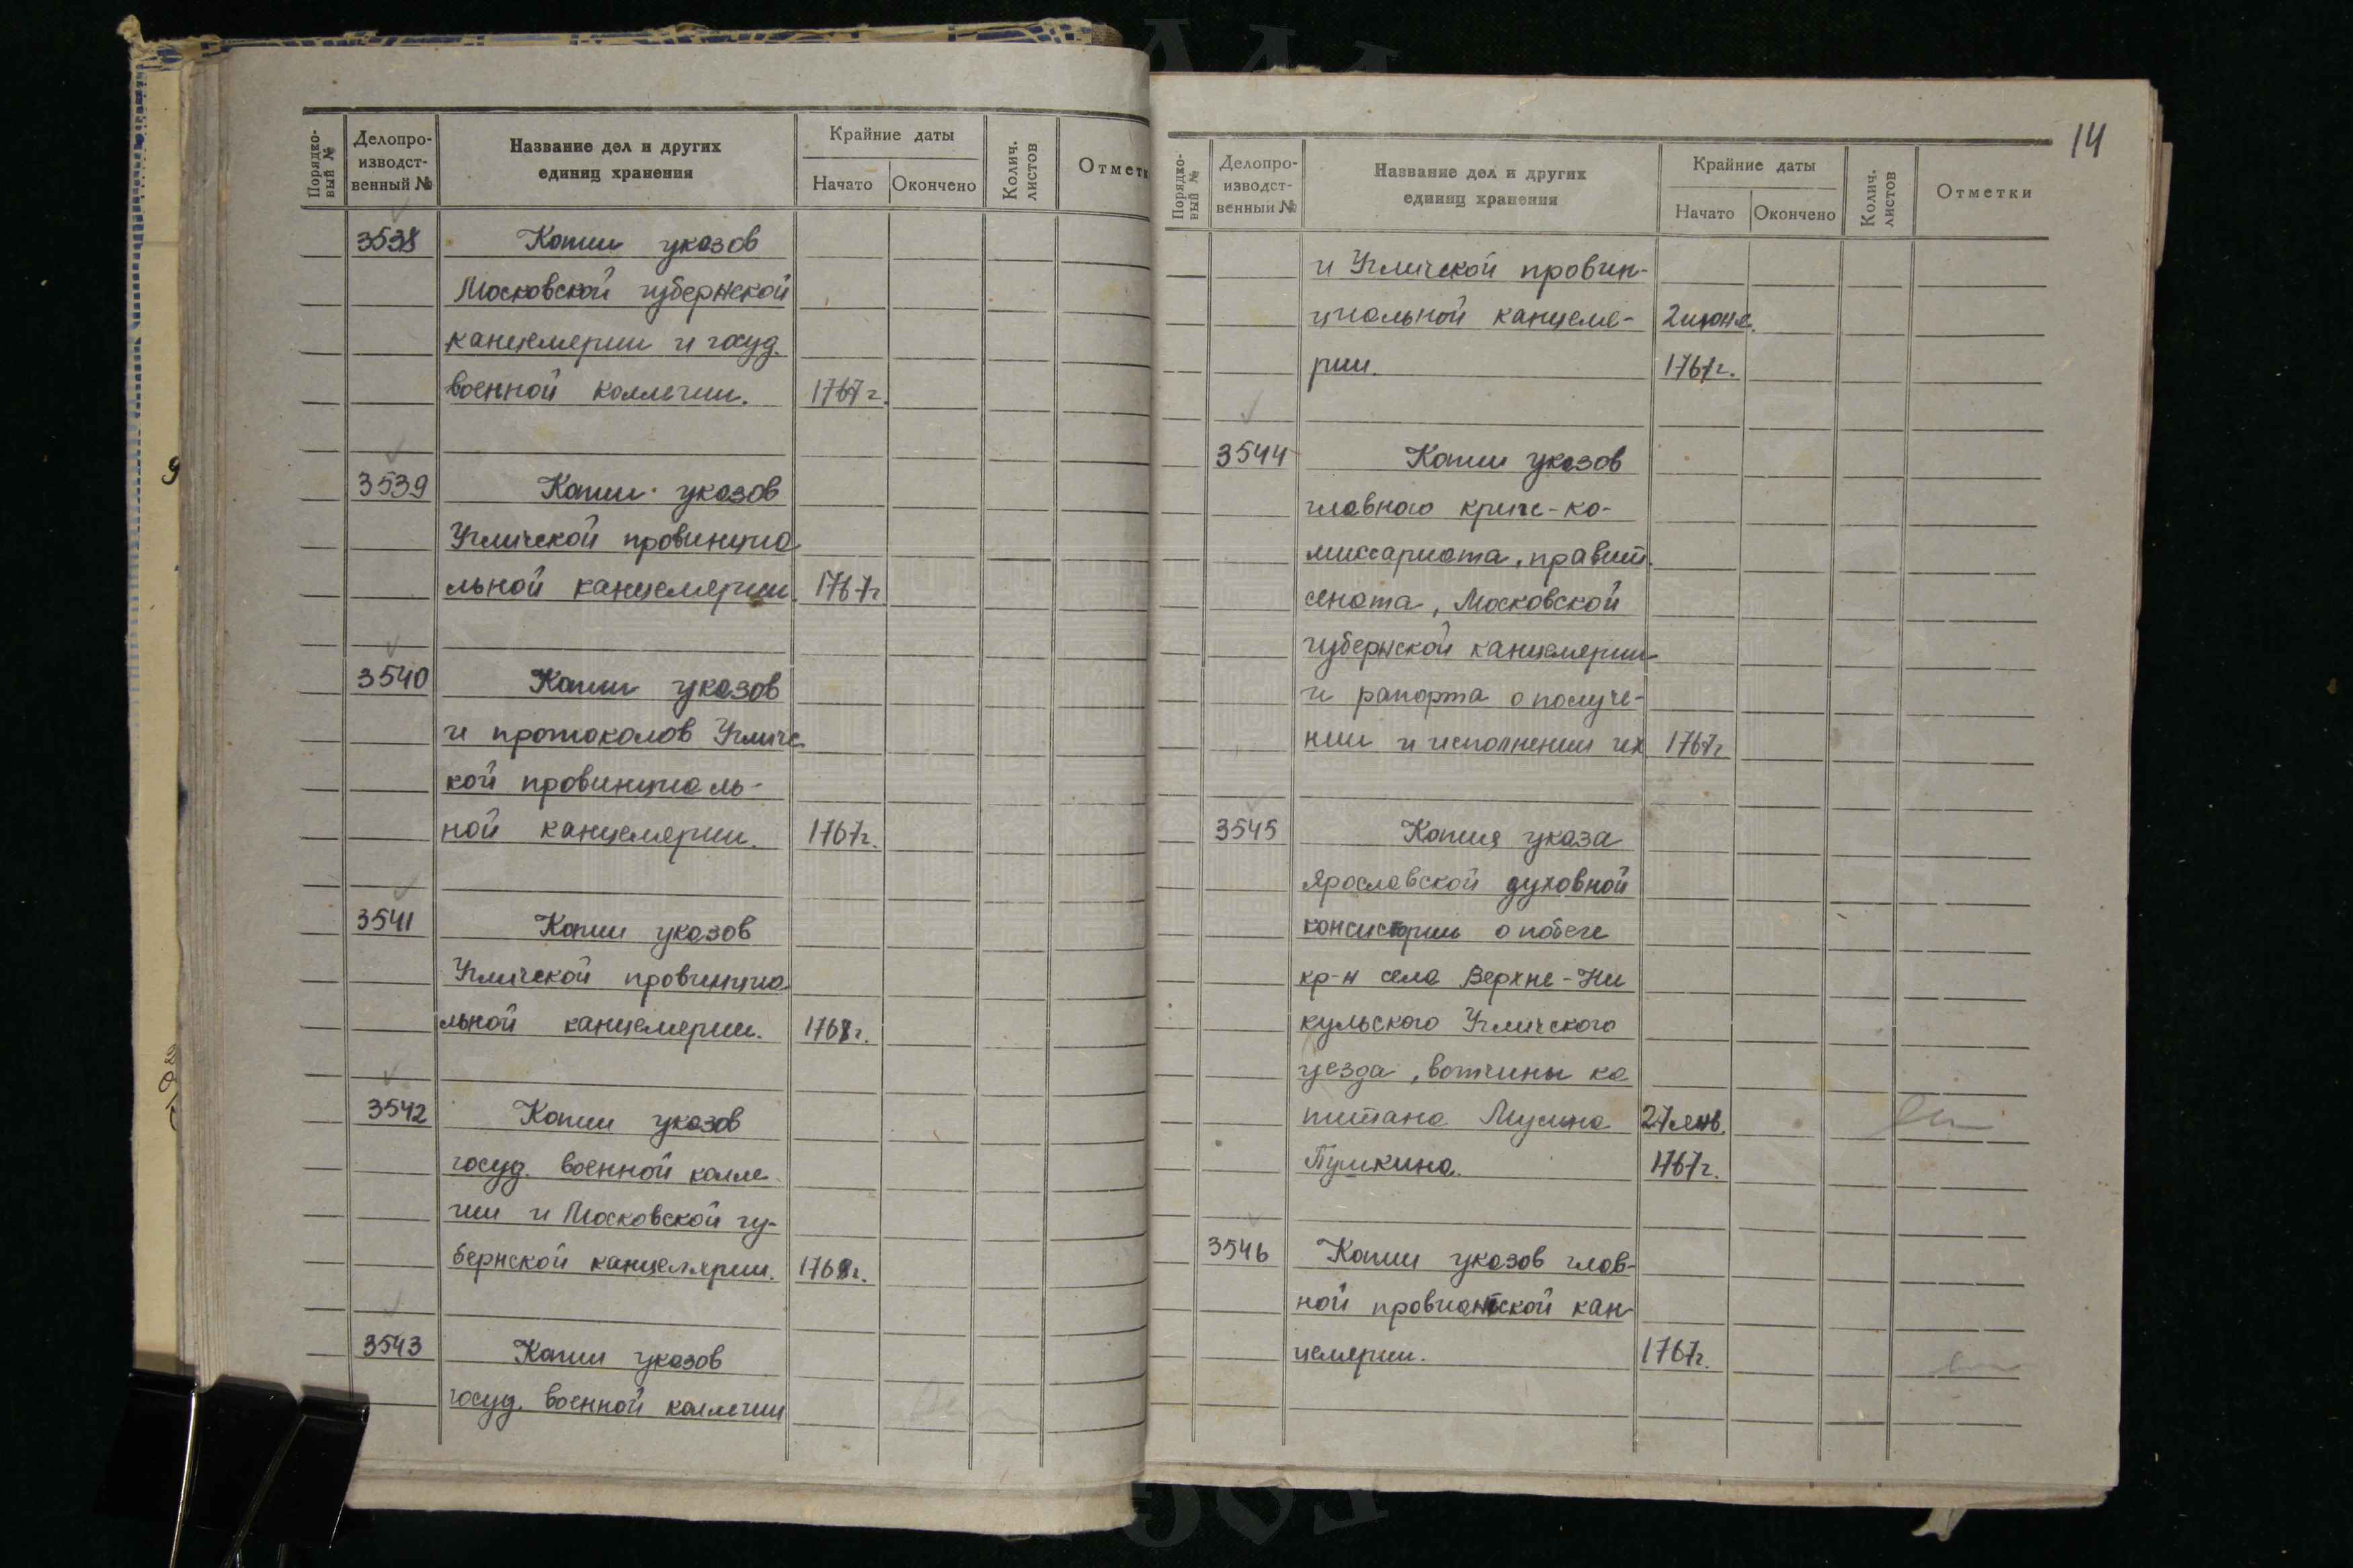 Порядко-
вый №
Делопро-
изводст-
венный №
Название дел и других
единиц хранения
Крайние даты
Начато
Окончено
Колич.
листов
Отметк
3538 Копии указов
Московской губернской
канцелярии и госуд.
военной коллегии. 1767 г.
3539 Копии указов
Угличской провинциа
льной канцелярии. 1767г
3540 Копии указов
и протоколов Угличс
кой провинциаль-
ной канцелярии. 1767г.
3541 Копии указов
Угличской провинциа
льной канцелярии. 1768г.
3542 Копии указов
госуд. военной колле
гии и Московской гу-
бернской канцелярии. 1768г.
3543 Копии указов
госуд. военной коллегии
14
Порядко-
вый №
Делопро-
изводст-
венный №
Название дел и других
единиц хранения
Крайние даты
Начато
Окончено
Колич.
листов
Отметки
и Угличской провин-
циальной канцеля- 2 июня.
рии. 1767г.
3544 Копии указов
главного кригс-ко-
миссариата, правит.
сената, Московской
губернской канцелярии
и рапорта о получе-
нии и исполнении их 1767г
3545 Копия указа
Ярославской духовной
консистории о побеге
кр-н села Верхне-Ни
кульского Угличского
уезда, вотчины ка
питана Мусина 27 янв.
Пушкина. 1767г.
3546 Копии указов глав-
ной провиантской кан-
целярии. 1767г.